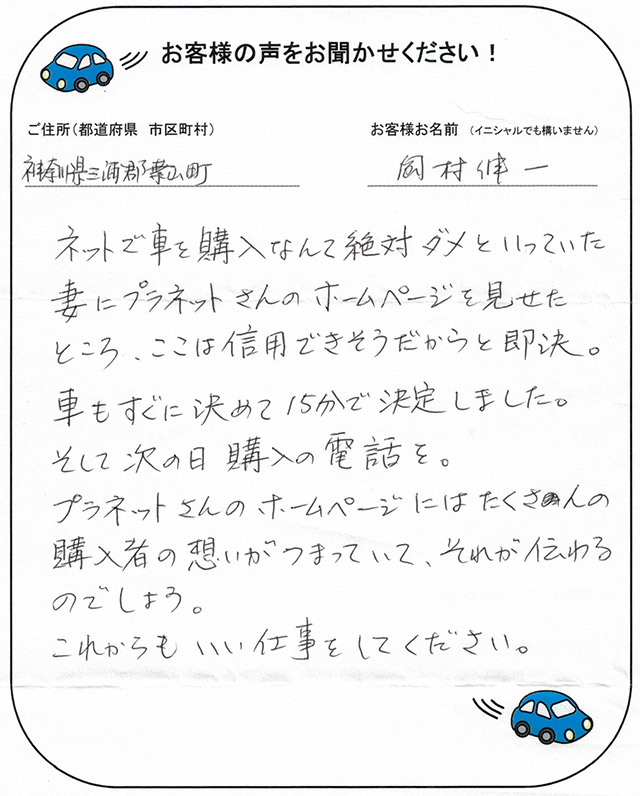 お客様の声をお聞かせください！
ご住所（都道府県　市区町村）
お客様お名前　（イニシャルでも構いません）
神奈川県三浦郡葉山町
岡村伸一
ネットで車を購入なんて絶対ダメといっていた
妻にプラネットさんのホームページを見せた
ところ、ここは信用できそうだからと即決。
車もすぐに決めて15分で決定しました。
そして次の日購入の電話を。
プラネットさんのホームページにはたくさんの
購入者の想いがつまっていて、それが伝わる
のでしょう。
これからもいい仕事をしてください。